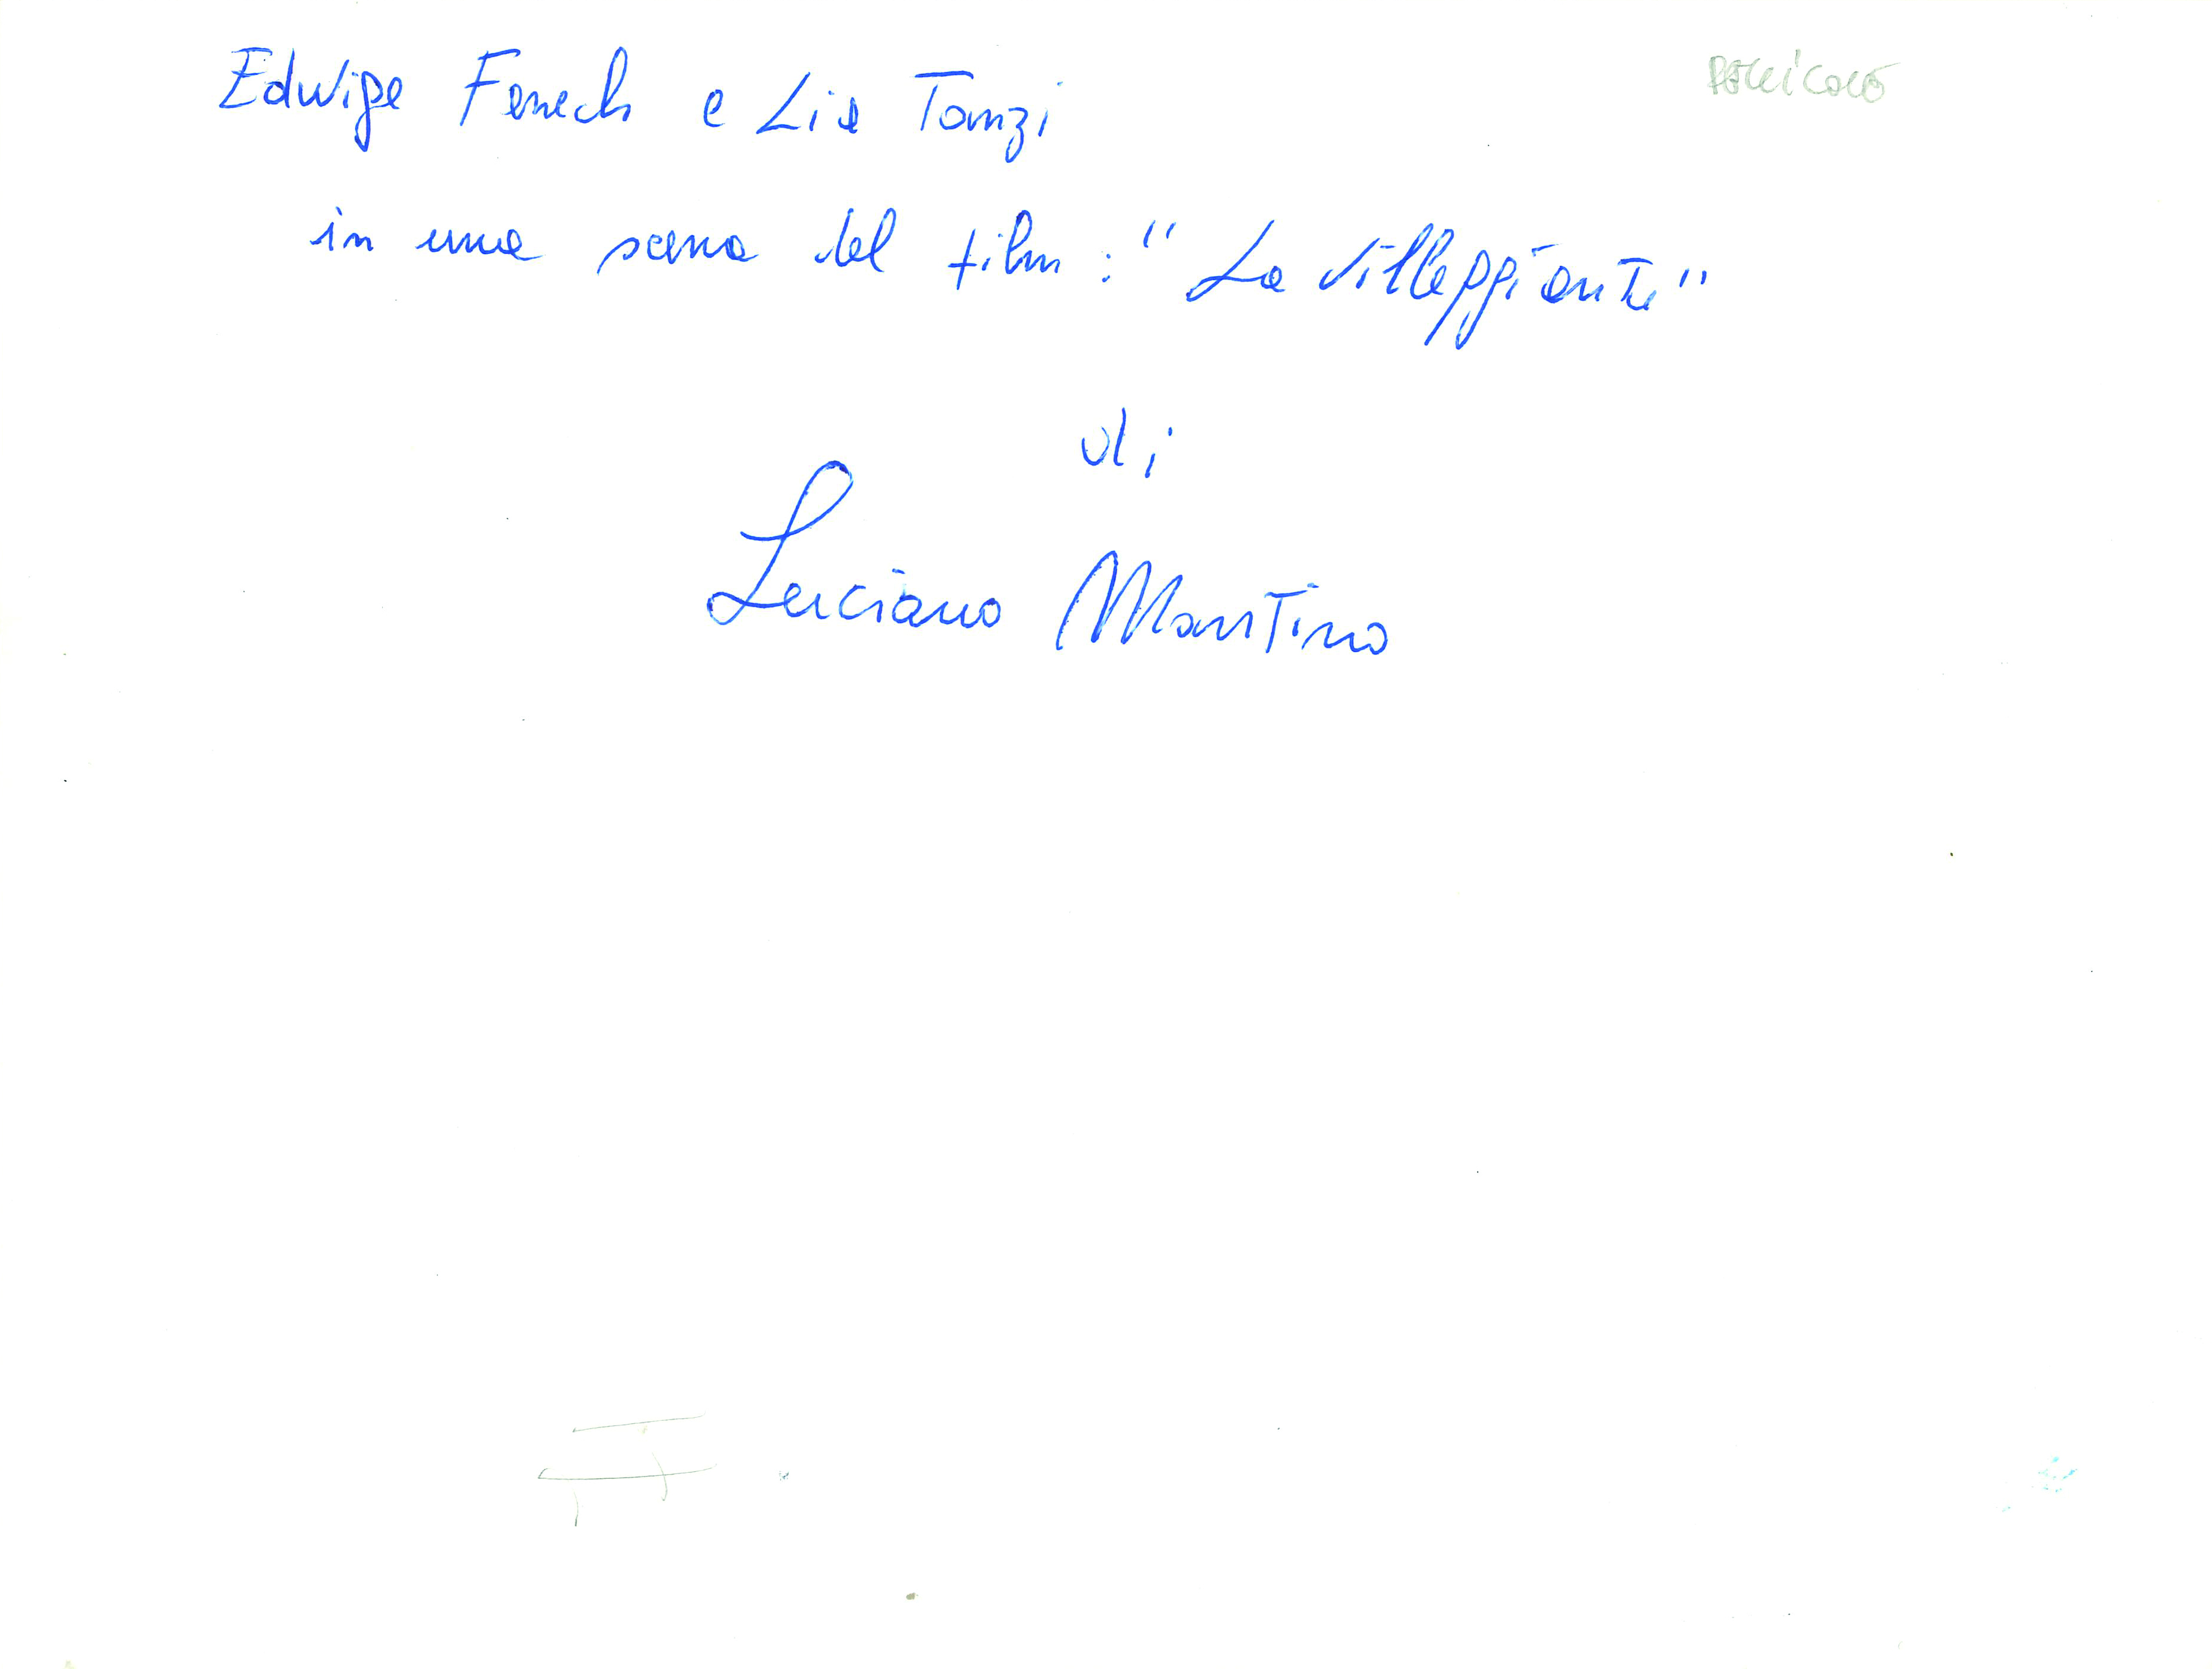 Edwige Fenech e Lia Tanzi
in una scena del film: "La villeggiante"
di
Luciano Martino